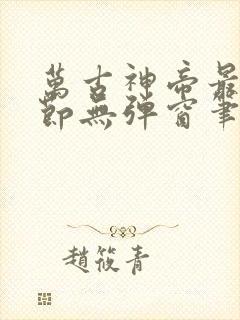 萬古神帝最
節無彈窗筆
趙筱青